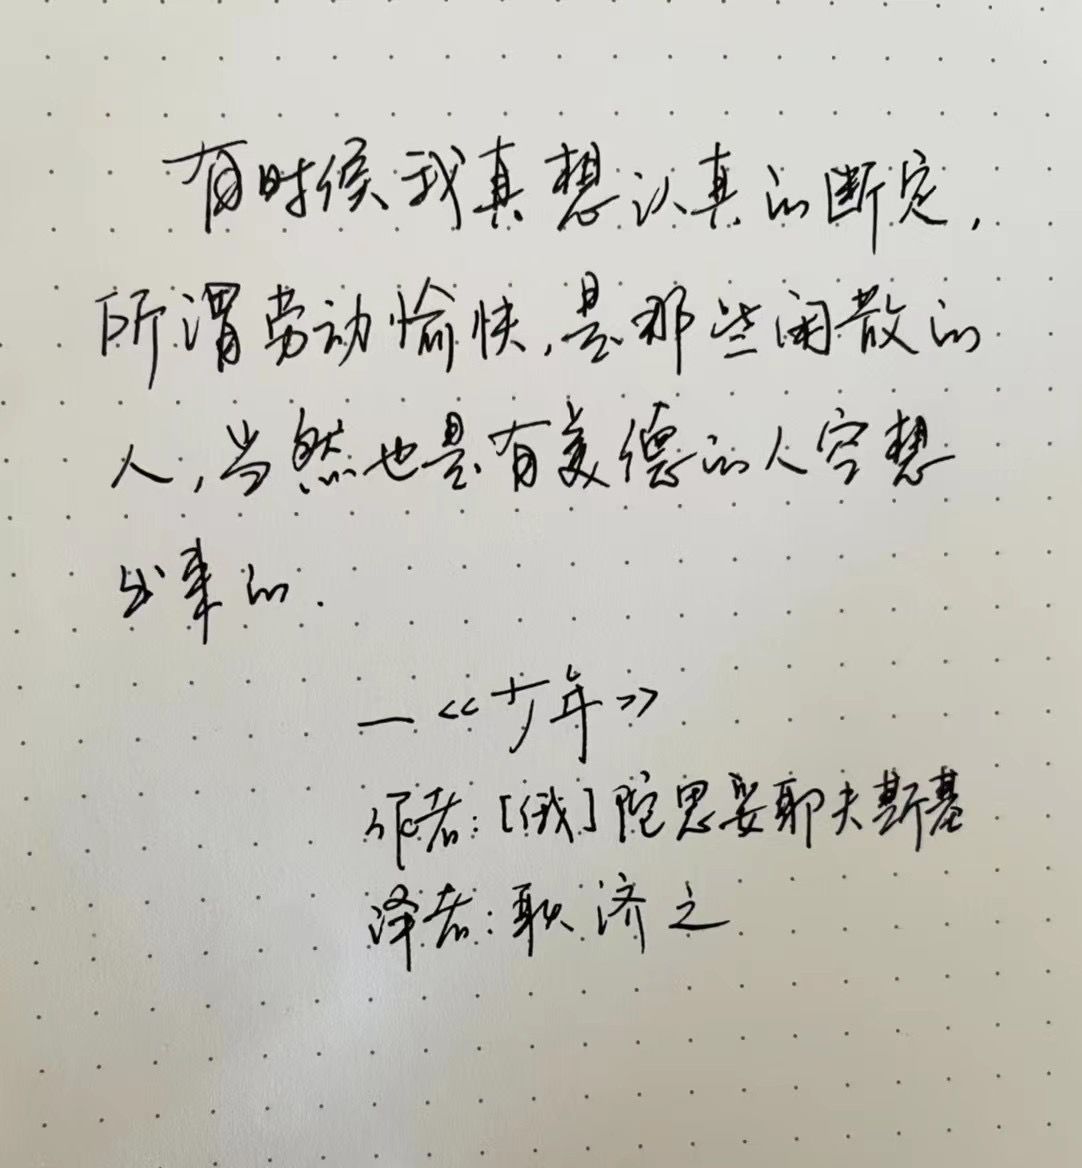 有时候我真想认真的断定，
所谓劳动愉快，是那些闲散的
人，当然也是有美德的人空想
出来的．
—《少年》
作者：[俄]陀思妥耶夫斯基
译者：耿济之